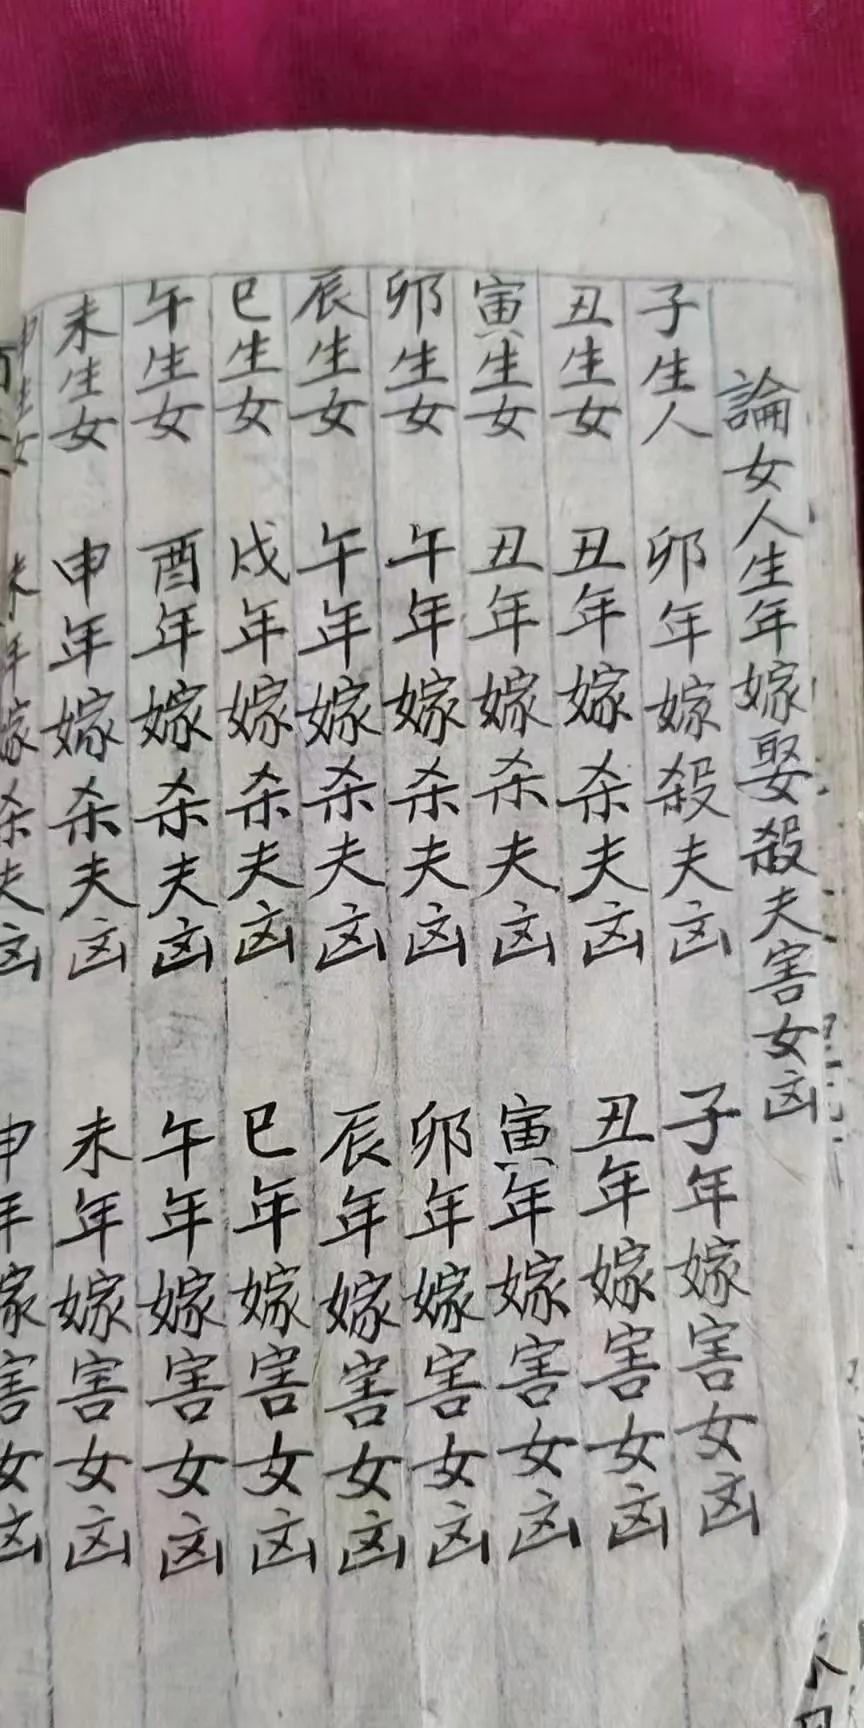 論女人生年嫁娶殺夫害女凶
子生人 卯年嫁殺夫凶 子年嫁害女凶
丑生女 丑年嫁杀夫凶 丑年嫁害女凶
寅生女 丑年嫁杀夫凶 寅年嫁害女凶
卯生女 午年嫁杀夫凶 卯年嫁害女凶
辰生女 午年嫁杀夫凶 辰年嫁害女凶
巳生女 戌年嫁杀夫凶 巳年嫁害女凶
午生女 酉年嫁杀夫凶 午年嫁害女凶
未生女 申年嫁杀夫凶 未年嫁害女凶
申生女 未年嫁杀夫凶 申年嫁害女凶